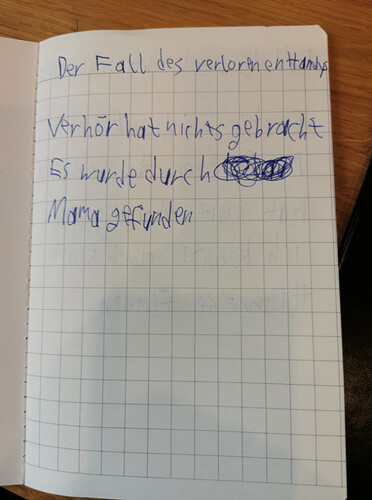 Der Fall des verlorenen Handys
Verhör hat nichts gebracht
Es wurde durch
Mama gefunden